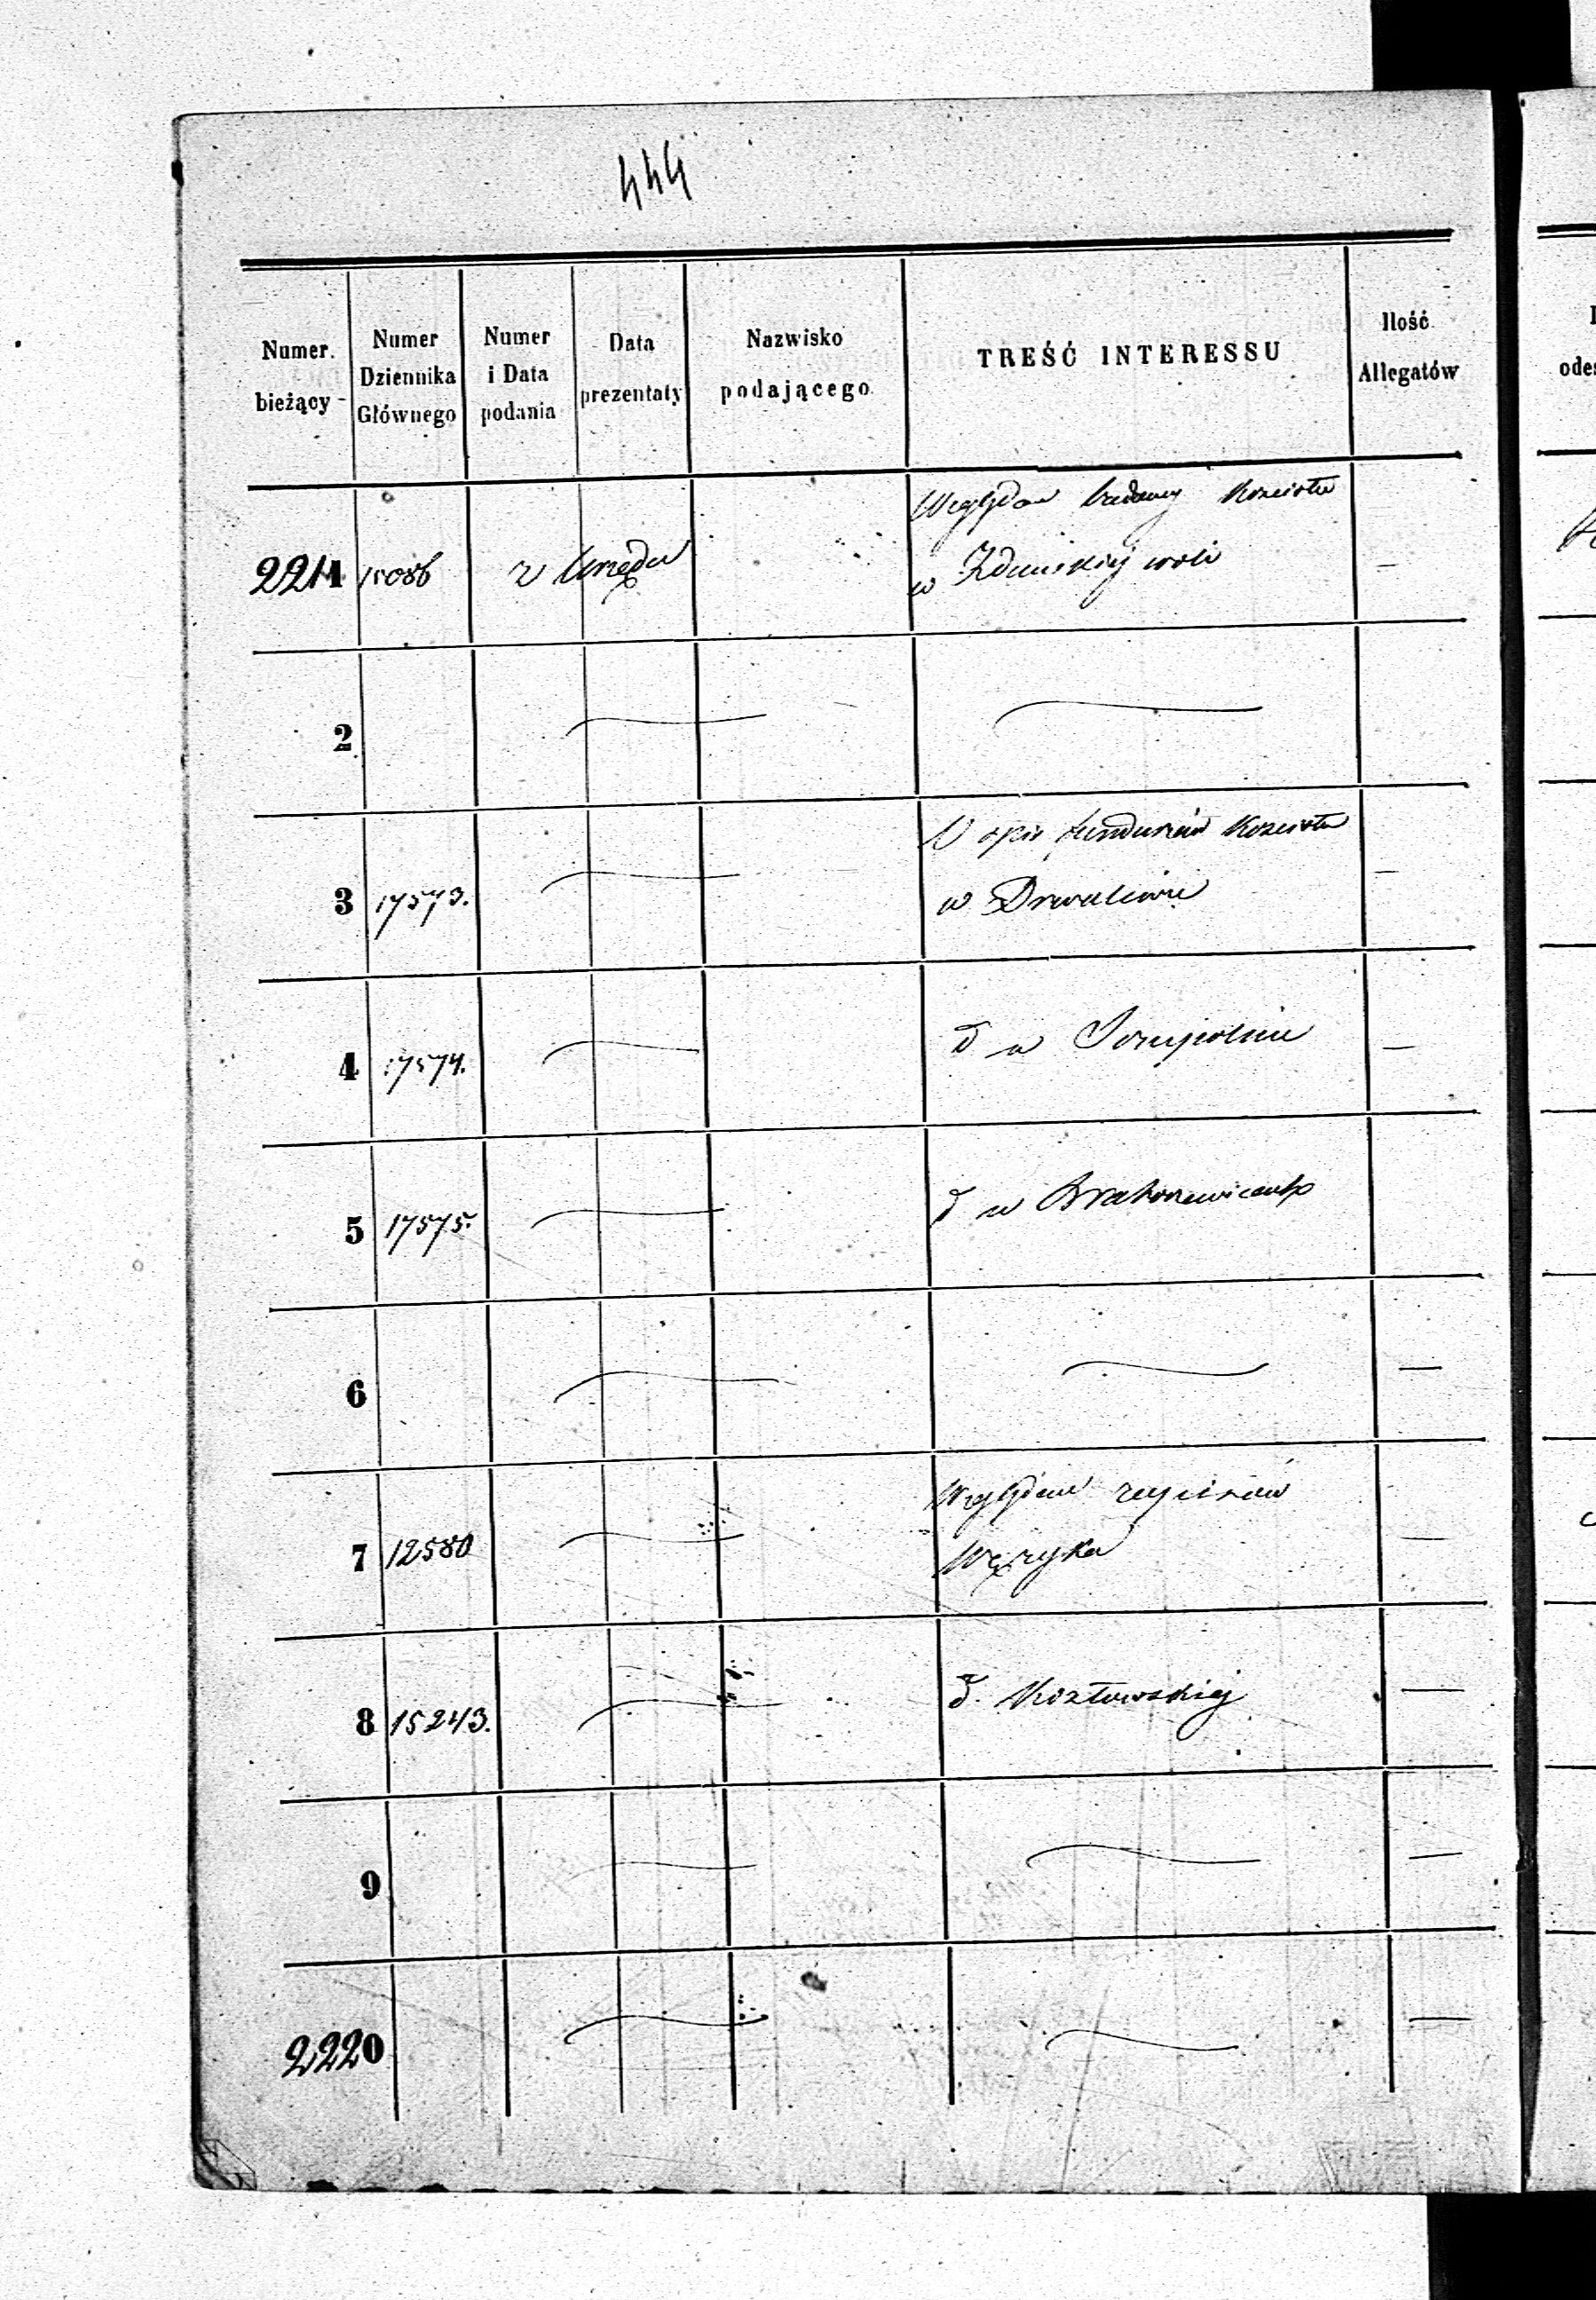 444
Numer bieżący
Numer Dziennika Głównego
Numer i Data podania
Data prezentaty
Nazwisko podającego
TREŚĆ INTERESSU
Ilość Allegatów
2211 15086 z Urzędu Względem budowy Kościoła
w Zduńskiej woli —
2
3 17573. funduszów Kościoła
w Drwalewie —
4 17574. d w —
5 17575. d w
6 —
7 12580 Względem
Wężyka —
8 15243. d. Kozłowskiej —
9 —
2220 —